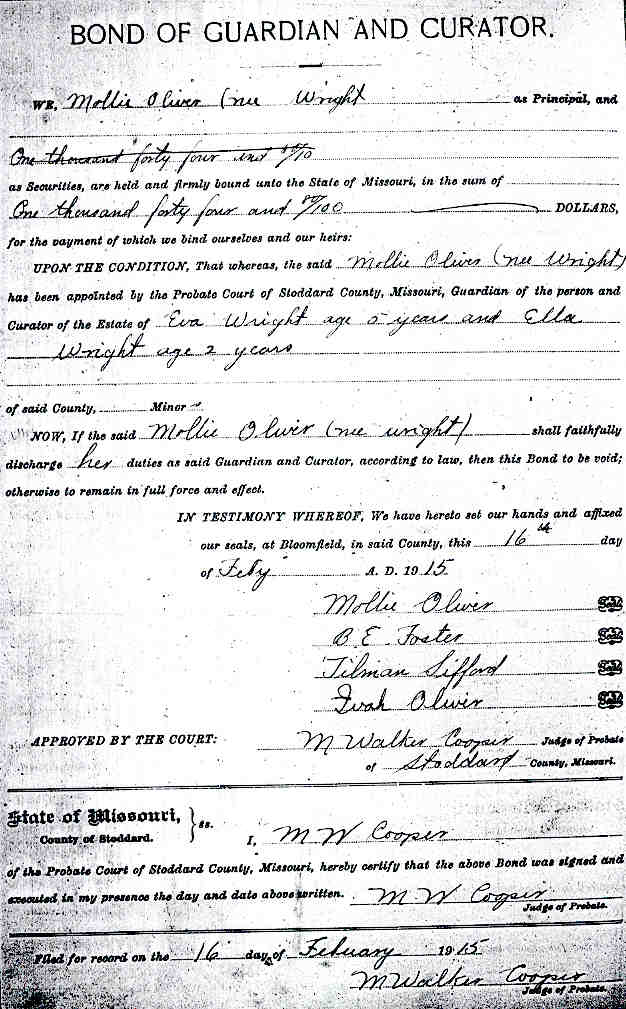 BOND OF GUARDIAN AND CURATOR.
WE, Mollie Oliver (nee Wright as Principal, and
One thousand forty four and
as Securities, are held and firmly bound unto the State of Missouri, in the sum of
One thousand forty four and /100 DOLLARS,
for the payment of which we bind ourselves and our heirs:
UPON THE CONDITION, That whereas, the said Mollie Oliver (nee Wright)
has been appointed by the Probate Court of Stoddard County, Missouri, Guardian of the person and
Curator of the Estate of Eva Wright age 5 years and Ella
Wright age 2 years
of said County, Minors
NOW, If the said Mollie Oliver (nee wright) shall faithfully
discharge her duties as said Guardian and Curator, according to law, then this Bond to be void;
otherwise to remain in full force and effect.
IN TESTIMONY WHEREOF, We have hereto set our hands and affixed
our seals, at Bloomfield, in said County, this 16th day
of Feby A. D. 1915.
Mollie Oliver Seal
B E Foster Seal
Tilman Sifford Seal
Ivah Oliver Seal
APPROVED BY THE COURT: M Walker Cooper Judge of Probate
of Stoddard County, Missouri.
State of Missouri, } ss.
County of Stoddard. I, M W Cooper
of the Probate Court of Stoddard County, Missouri, hereby certify that the above Bond was signed and
executed in my presence the day and date above written. M W Cooper
Judge of Probate.
Filed for record on the 16 day of February 1915
M Walker Cooper
Judge of Probate.